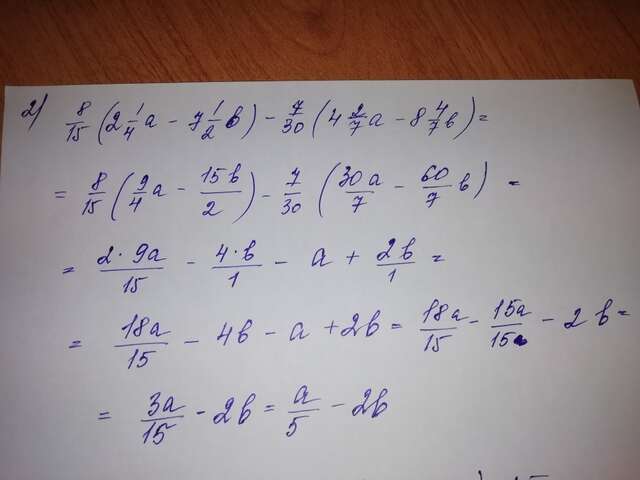 2) 8/15 (2 1/4 a - 7 1/2 b) - 7/30 (4 2/7 a - 8 4/7 b) =
= 8/15 (9/4 a - 15b/2) - 7/30 (30a/7 - 60/7 b) =
= 2·9a/15 - 4·b/1 - a + 2b/1 =
= 18a/15 - 4b - a + 2b = 18a/15 - 15a/15 - 2b =
= 3a/15 - 2b = a/5 - 2b